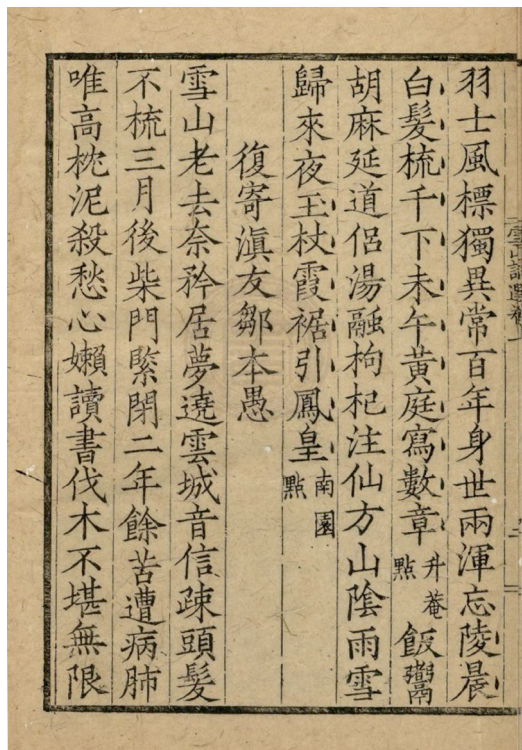 羽士風標獨異常百年身世兩渾忘陵晨
白髮梳千下未午黃庭寫數章升菴點飯鬻
胡麻延道侶湯融枸杞注仙方山陰雨雪
歸來夜玉杖霞裾引鳳皇南園點
復寄滇友鄒本愚
雪山老去奈矜居夢遶雲城音信疎頭髮
不梳三月後柴門緊閉二年餘苦遭病肺
唯高枕泥殺愁心嬾讀書伐木不堪無限